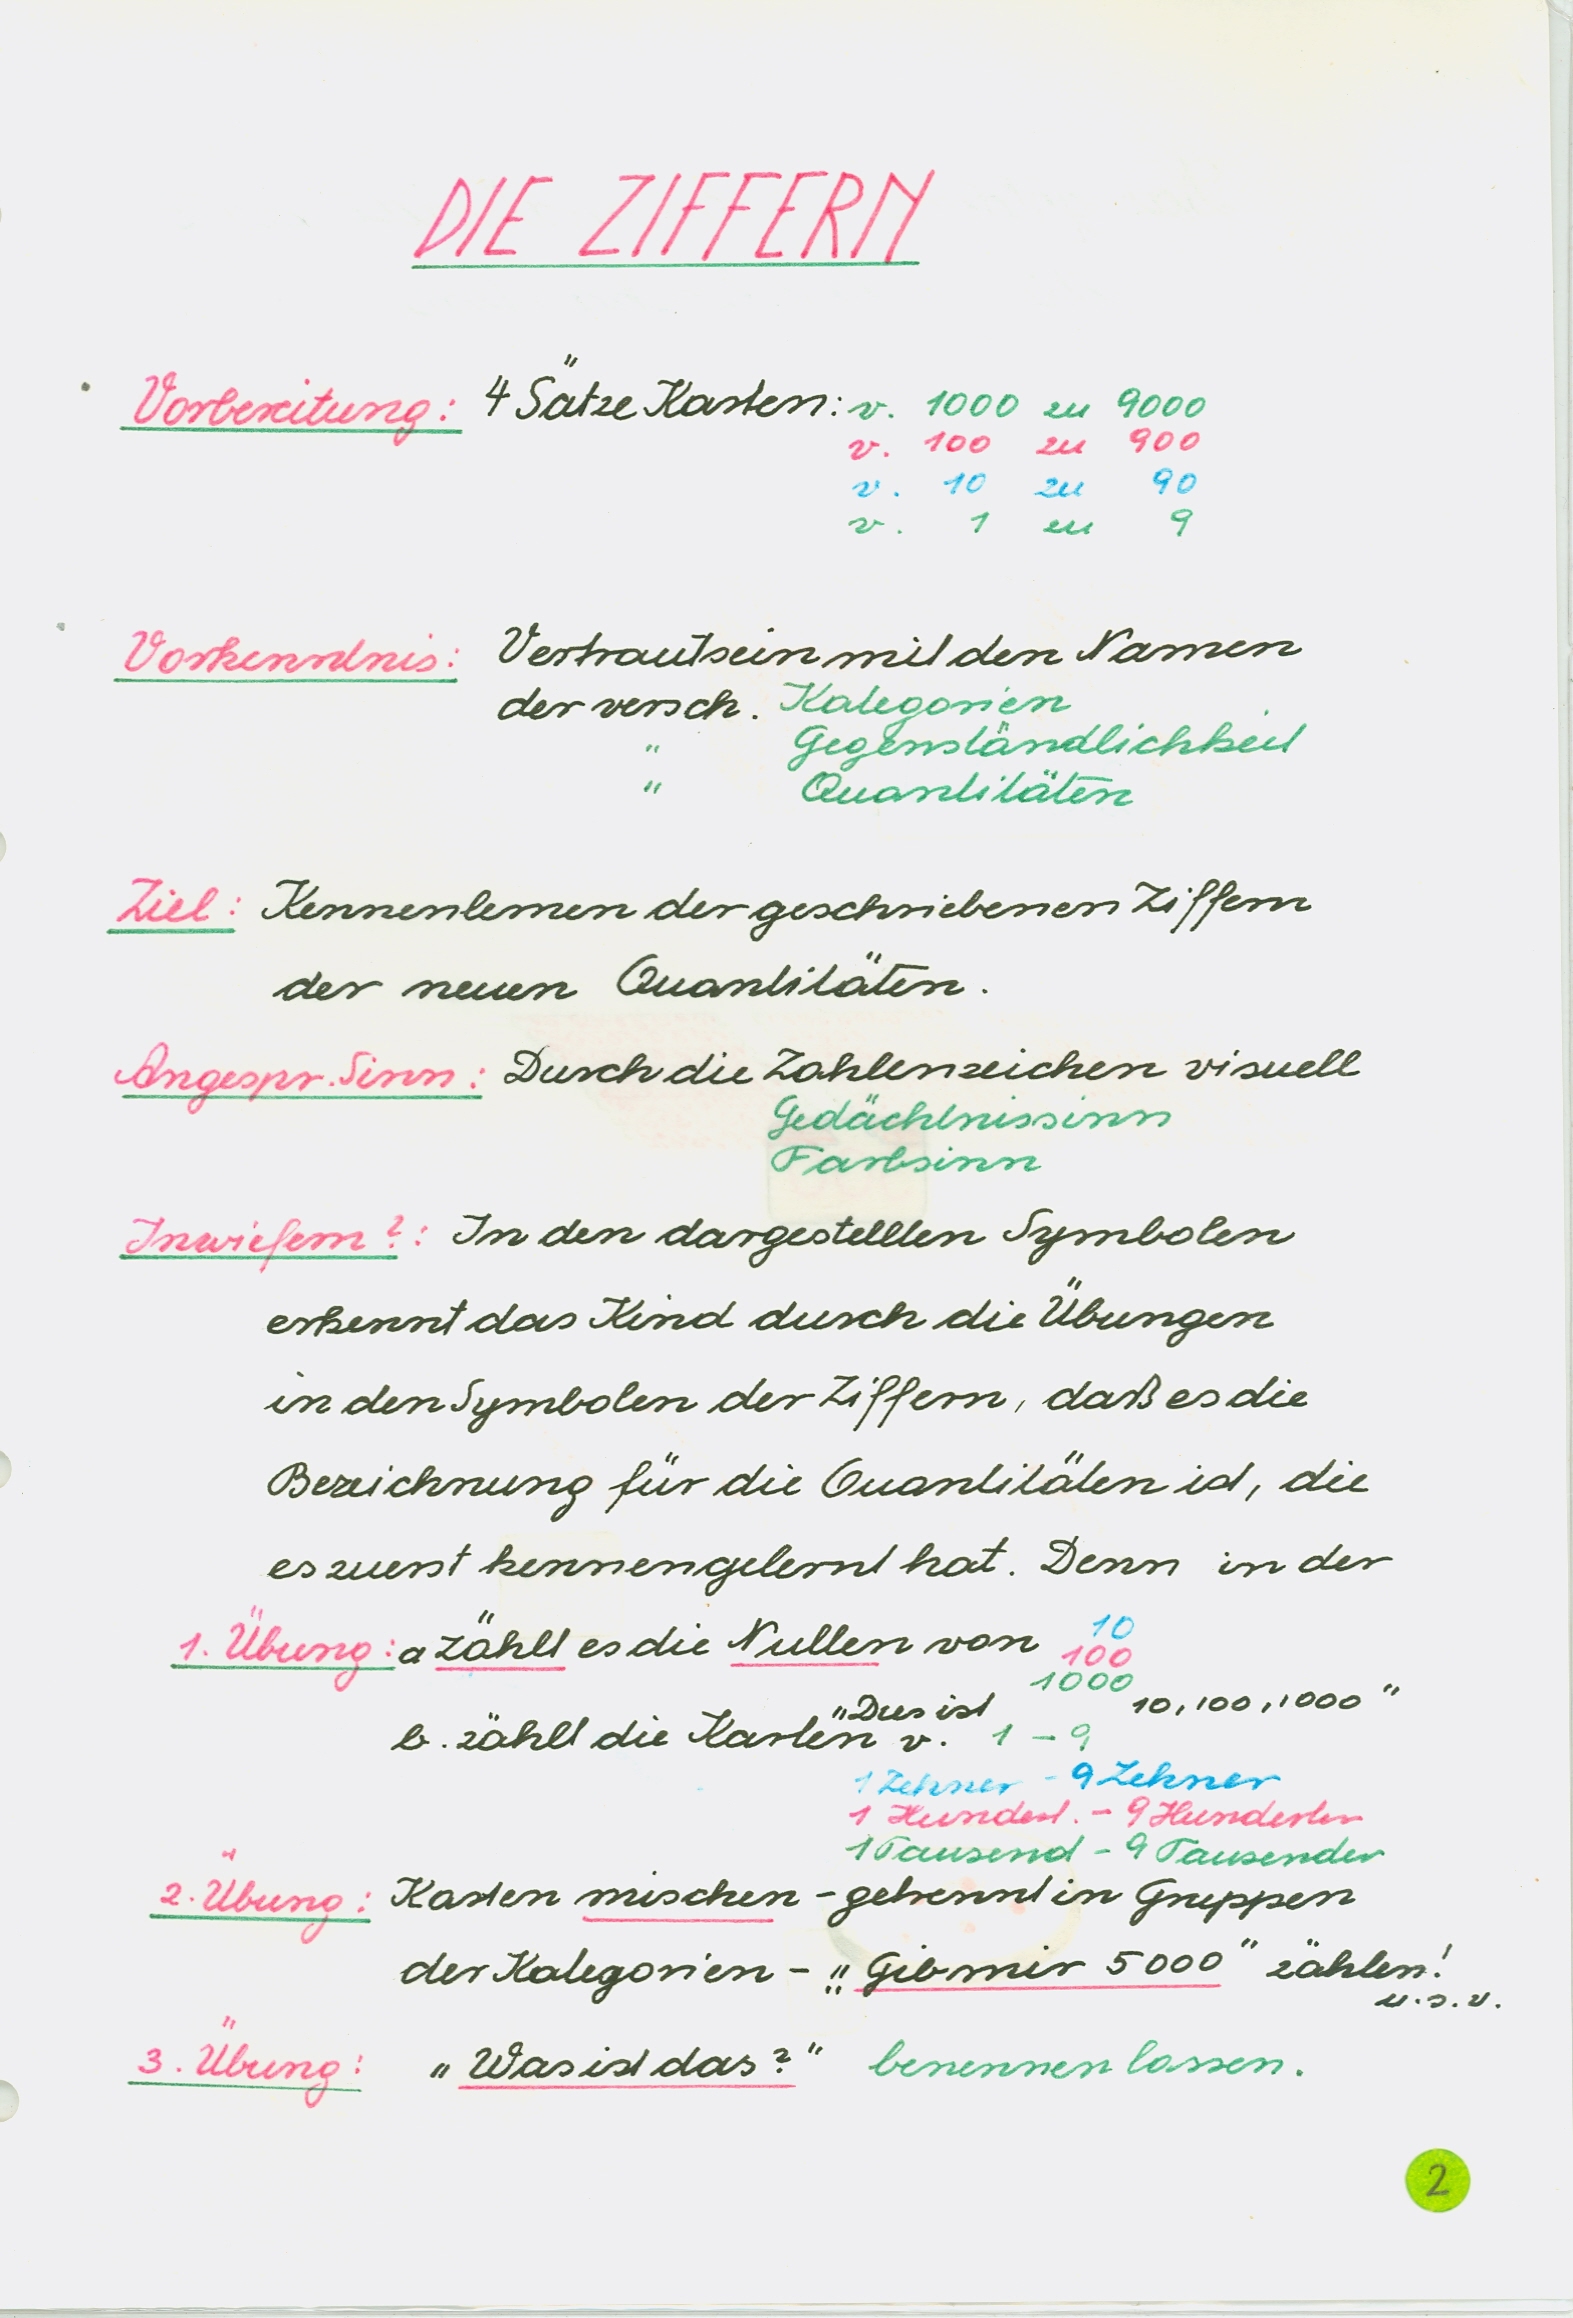 DIE ZIFFERN
Vorbereitung: 4 Sätze Karten: v. 1000 zu 9000
v. 100 zu 900
v. 10 zu 90
v. 1 zu 9
Vorkenntnis: Vertrautsein mit den Namen
der versch. Kategorien
" Gegenständlichkeit
" Quantitäten
Ziel: Kennenlernen der geschriebenen Ziffern
der neuen Quantitäten.
Angespr. Sinn: Durch die Zahlenzeichen visuell
Gedächtnissinn
Farbsinn
Inwiefern?: In den dargestellten Symbolen
erkennt das Kind durch die Übungen
in den Symbolen der Ziffern, daß es die
Bezeichnung für die Quantitäten ist, die
es zuerst kennengelernt hat. Denn in der
1. Übung: a zählt es die Nullen von 10
100
1000
"Das ist 10, 100, 1000"
b. zählt die Karten v. 1 – 9
1 Zehner – 9 Zehner
1 Hundert. – 9 Hunderter
1 Tausend – 9 Tausender
2. Übung: Karten mischen – getrennt in Gruppen
der Kategorien – „Gib mir 5000" zählen!
u.s.v.
3. Übung: „Was ist das?" benennen lassen.
2